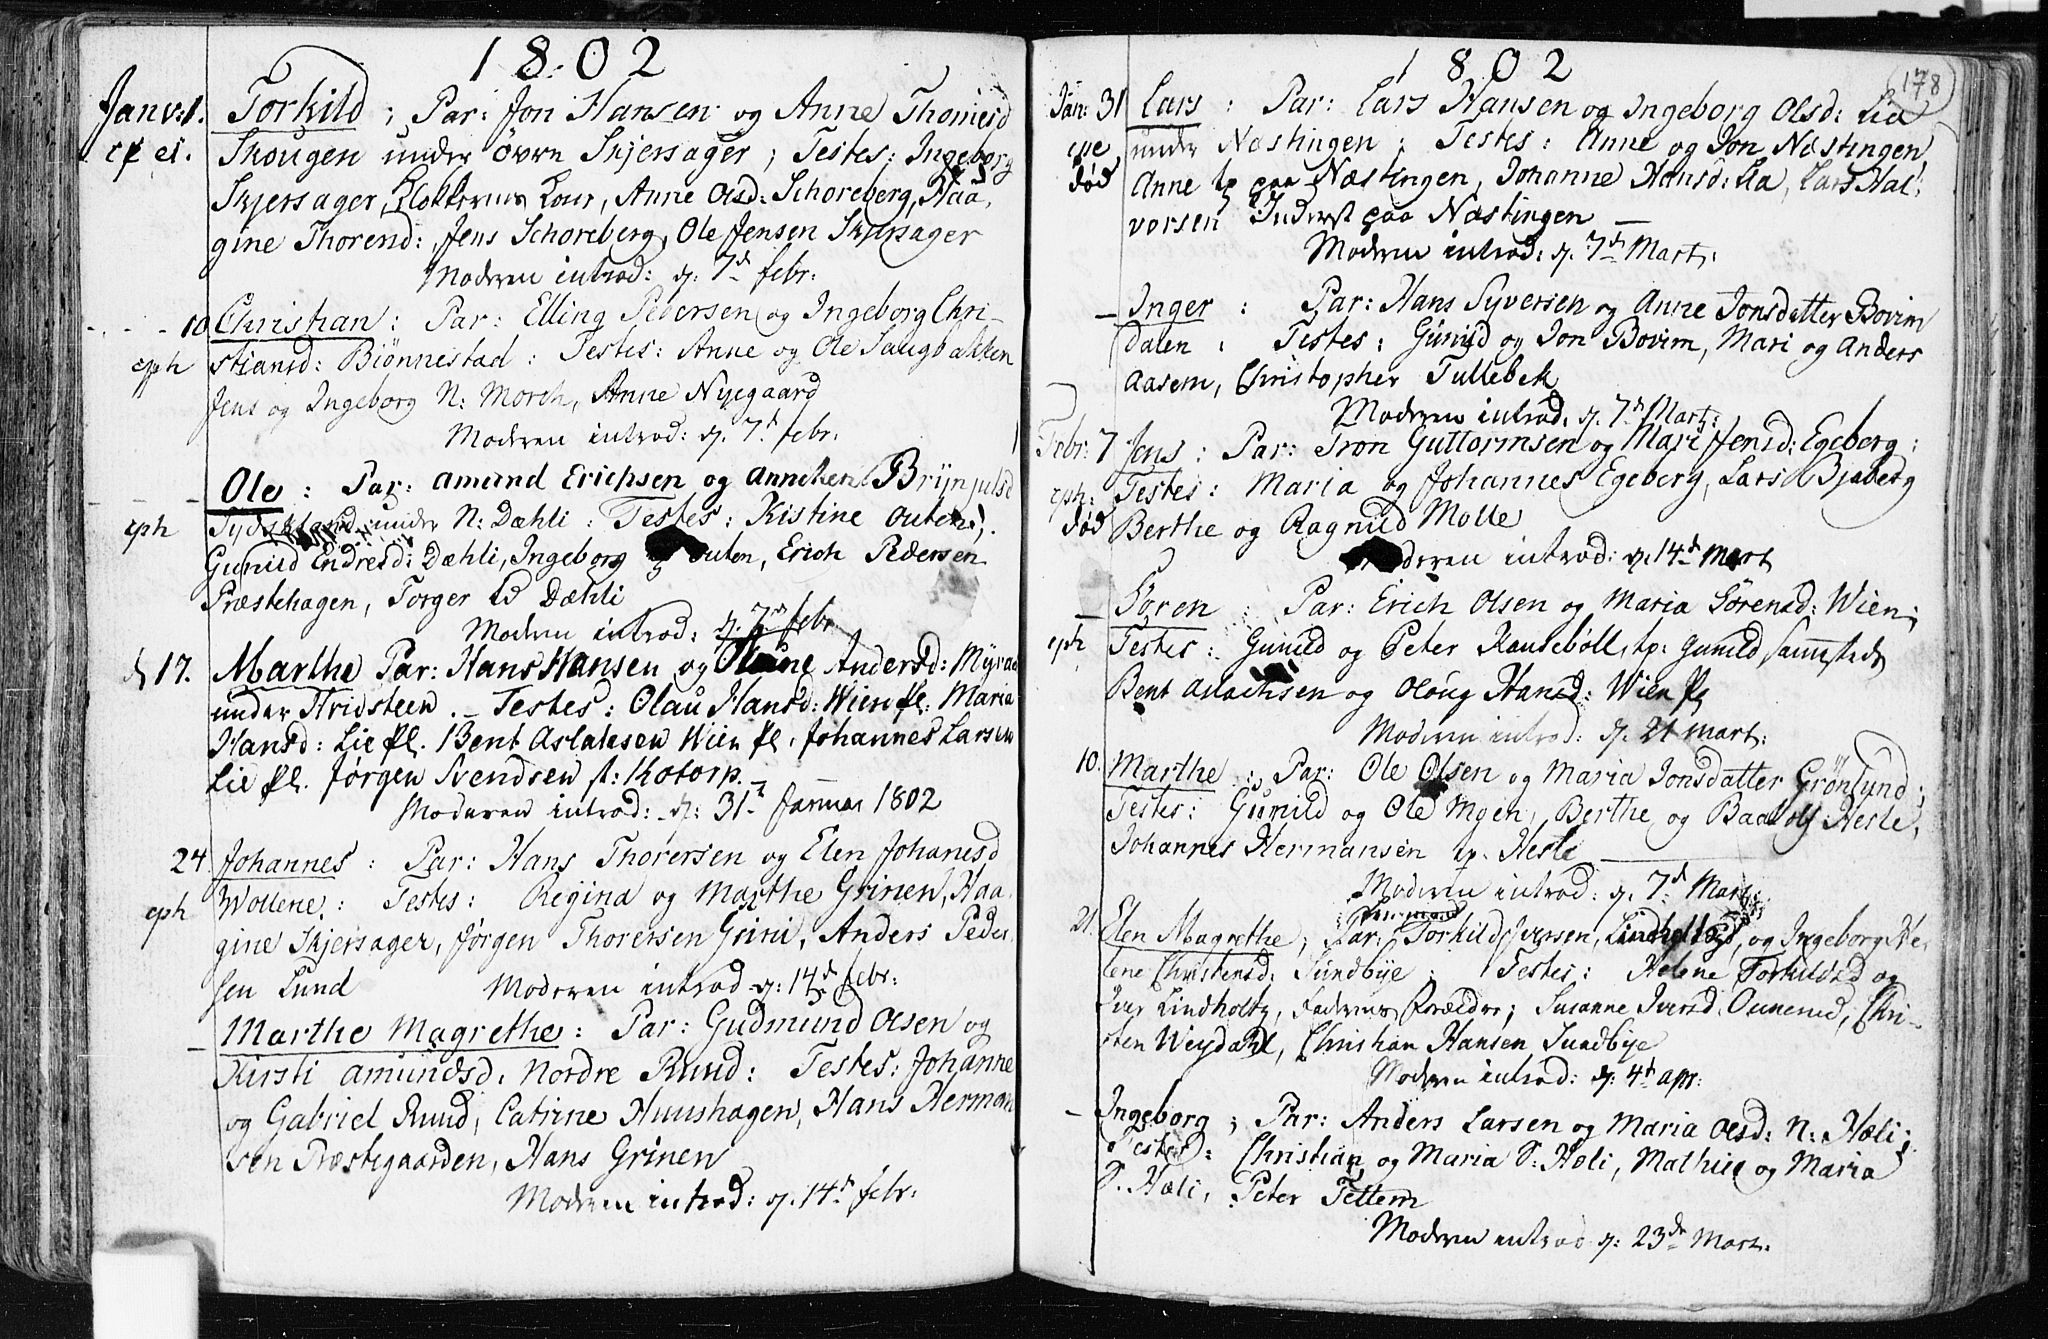 1802
Janv: 1. Torkild ; Par: Jon Hansen og Anne Thomesd
Skougen under övre Skjersager ; Testes: Ingeborg
Skjersager, Klokkerens Kone, Anne Olsd: Schoreberg, Haa,
gine Thorend:, Jens Schoreberg, Ole Jensen Skjersager
Moderen introd: d. 7d febr:
10 Christian : Par: Elling Pedersen og Ingeborg Chri-
eph stiansd: Biönnestad : Testes: Anne og Ole Saugbakken
Jens og Ingeborg N: Morch, Anne Nyegaard
Moderen introd: d. 7d febr:
Ole : Par: Amund Erichsen og Annichen Brynjulsd
eph under N: Dæhli : Testes: Kistine Outen,
Gunild Endresd: Dæhli, Ingeborg Outen, Erich Pedersen
Præstehagen, Torger Dæhli
Moderen introd: d. 7d febr
d 17. Marthe Par: Hans Hansen og Andersd: Myra
under Hridsteen . - Testes: Olau Hansd: Wien pl: Maria
Hansd: Lie pl. Bent Aslaksen Wien pl. Johannes Larsen
Lie pl. Jørgen Svendsen Kotorp.
Moderen introd: d: 31t Januar 1802
24 Johannes : Par: Hans Thorersen og Elen Johanesd
Wollene : Testes: Regina og Marthe Grinen, Haa
eph
gine Skjersager, Jørgen Thorersen Grini, Anders Peder
sen Lund Moderen introd d: 14d febr:
- Marthe Magrethe : Par: Gudmund Olsen og
Kirsti Amundsd: Nordre Ruud : Testes: Johanne
og Gabriel Ruud, Catrine Huushagen, Hans Herman
sen Præstegaarden, Hans Grinen
Moderen introd: d. 14d febr:
1802
178
Jan: 31 Lars : Par: Lars Hansen og Ingeborg Olsd: Lia
under Næstingen ; Testes: Anne og Jon Næstingen
død Anne tp paa Næstingen, Johanne Hansd: Lia, Lars Hal:
vorsen Inderst paa Næstingen
Moderen introd: d. 7d Mart:
- Inger : Par: Hans Syversen og Anne Jonsdatter Bovim
dalen : Testes: Gunild og Jon Bovim, Mari og Anders
Aasem, Christopher Tullebek
Moderen introd. d. 7d Mart:
Febr: 7 Jens : Par: Tron Guttormsen og Mari Jensd: Egeberg :
eph: Testes: Maria og Johannes Egeberg, Lars Bjaberg
død Berthe og Ragnild Molle
Moderen introd: d. 14d Mart
- Soren : Par: Erich Olsen og Maria Sörensd: Wien ;
eph Testes: Gunild og Peter Ransebøll, tp: Gunild sammesteds
Bent Aslachsen og Oloug Hansd: Wien pl
Moderen introd: d. 21 Mart:
10. Marthe : Par: Ole Olsen og Maria Jonsdatter Grönlund ;
Testes: Gunild og Ole Mgen, Berthe og Baardolf Hesle,
Johannes Hermansen tp. Hesle
Moderen introd: d. 7d Mart:
21. Elen Magrethe ; Par: Torkild Iversen, Lindholtz, og Ingeborg He,
lene Christensd: Sundbye : Testes: Helene Torkildsd og
Iver Lindholtz, Faderens Forældre ; Susanne Iversd: Ounerud, Chri-
sten Weydahl, Christian Hansen Sundbye
Moderen introd: d. 4d apr:
- Ingeborg ; Par: Anders Larsen og Maria Olsd: N: Hæli ;
Testes: Christian og Maria S: Hæli, Mathie og Maria
S. Hæli, Peter Tettem
Moderen introd d: 23de Mart: